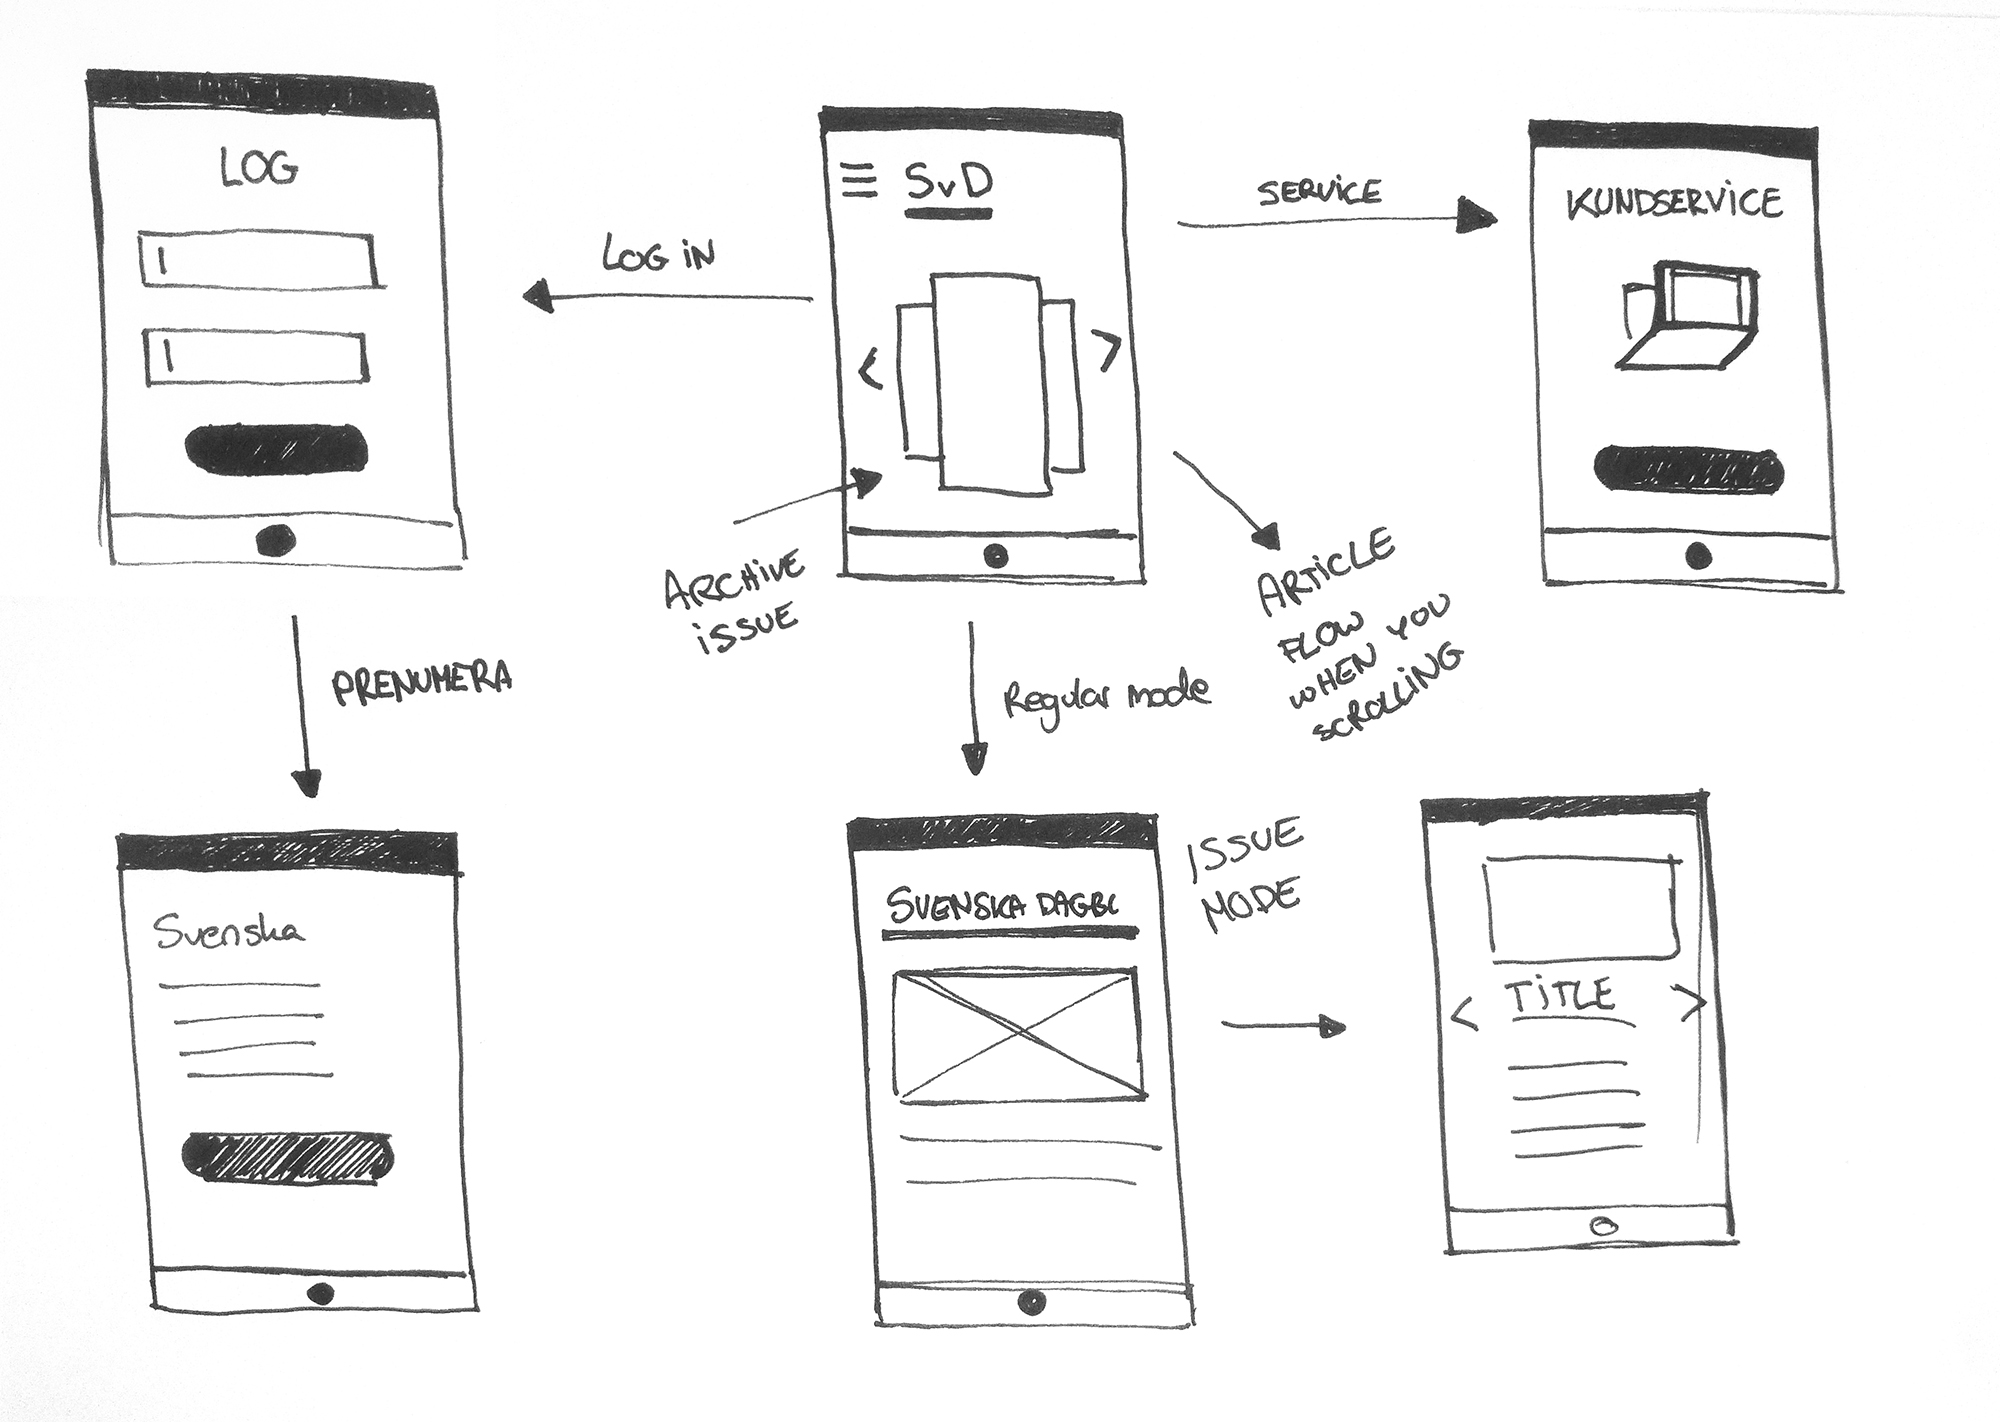 LOG
LOG IN
SvD
SERVICE
KUNDSERVICE
ARCHIVE
ISSUE
ARTICLE
FLOW
WHEN YOU
SCROLLING
PRENUMERA
Regular mode
Svenska
SVENSKA DAGBL
ISSUE
MODE
TITLE